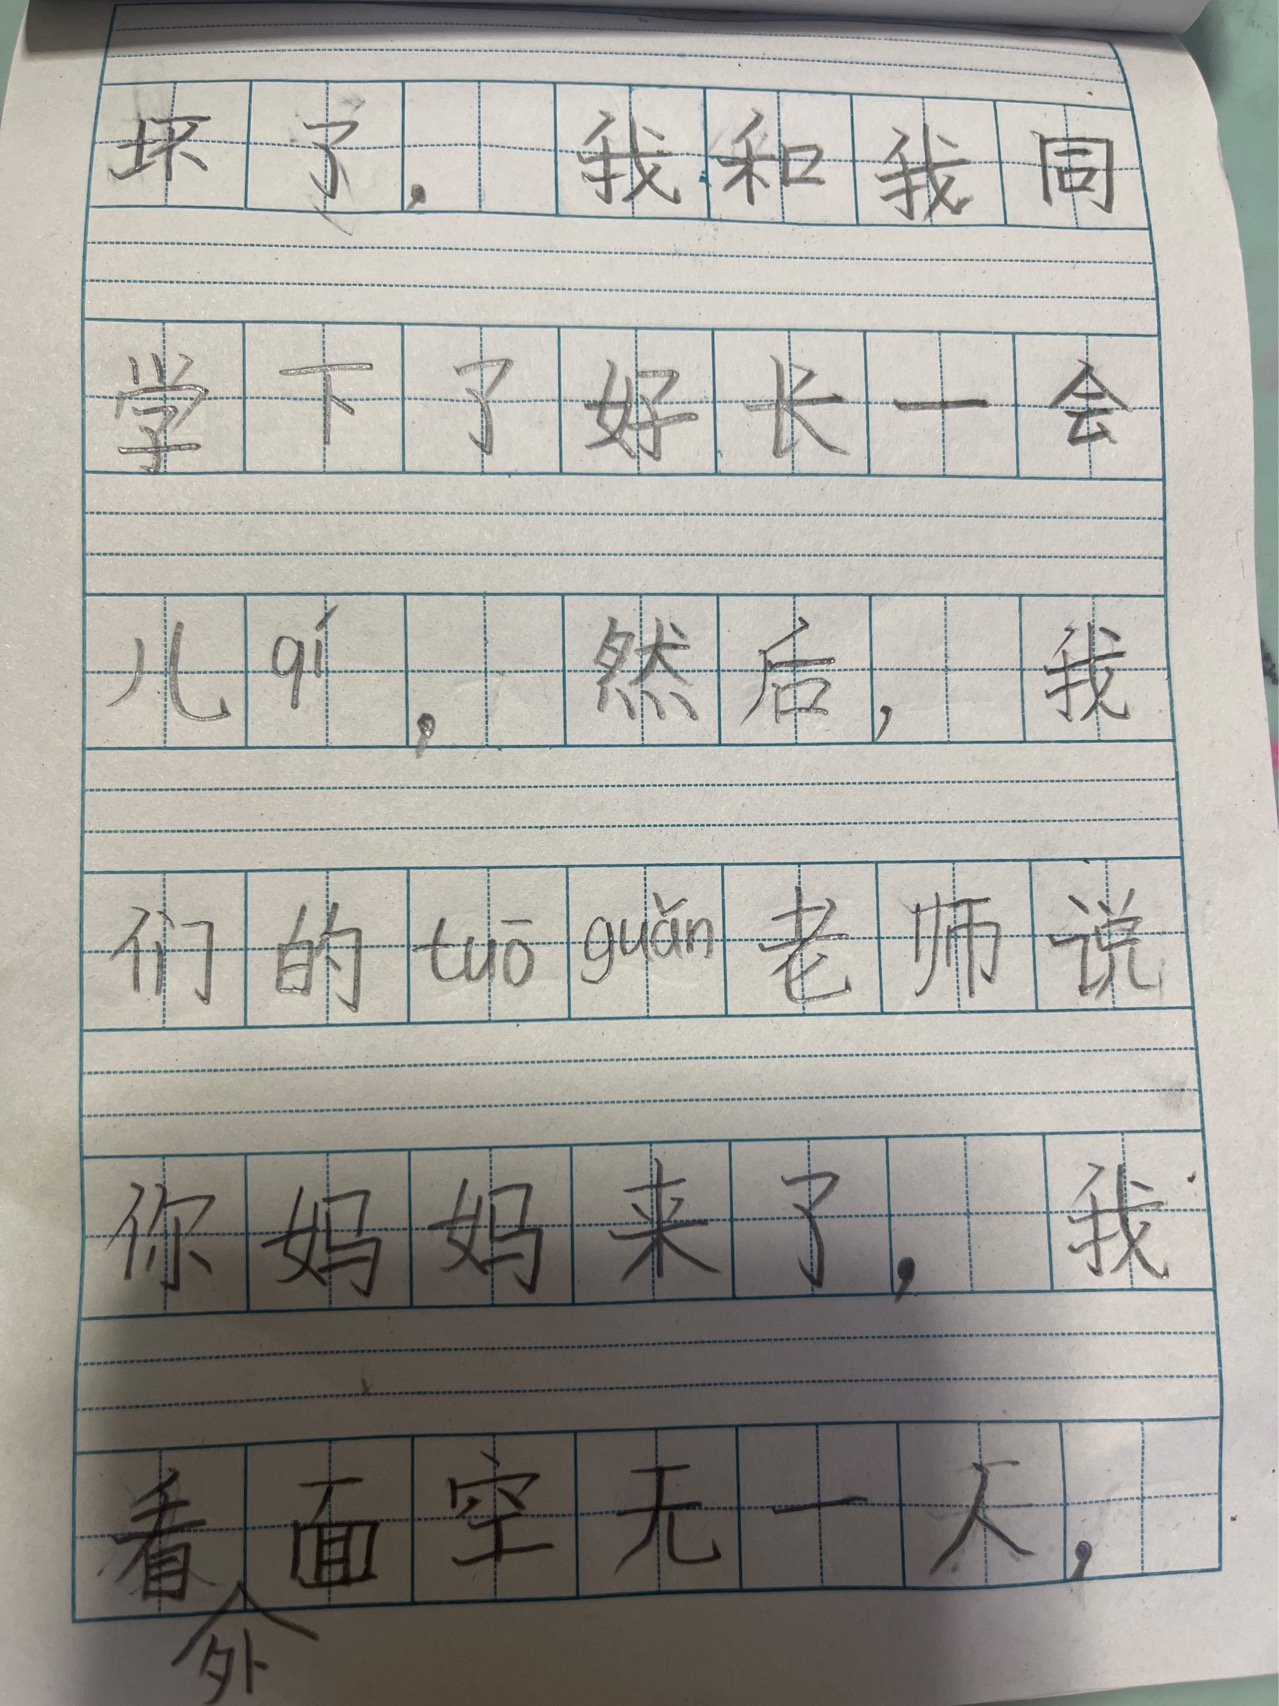 坏了，我和我同
学下了好长一会
儿qí，然后，我
们的tuō guǎn老师说
你妈妈来了，我
看外面空无一人，